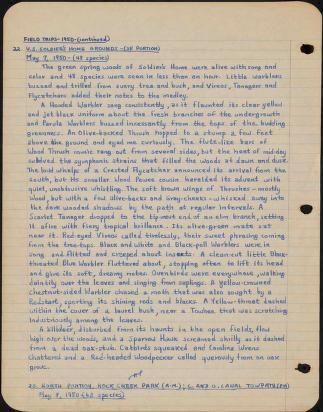 FIELD TRIPS-1950-(continued)
22. U.S. SOLDIER'S HOME GROUNDS-(SE PORTION)
May 7, 1950-(48 species)
The green spring woods of Soldier's Home were alive with song and
color and 48 species were seen in less than an hour. Little Warblers
buzzed and trilled from every tree and bush, and Vireos, Tanagers and
Flycatchers added their notes to the medley.
A Hooded Warbler sang consistently, as it flaunted its clear yellow
and jet black uniform about the fresh branches of the undergrowth
and Parula Warblers buzzed incessantly from the tops of the budding
greenness. An Olive-backed Thrush hopped to a stump a few feet
above the ground and eyed me curiously. The flute-like bars of
Wood Thrush music rang out from several sides, but the heat of mid-day
subdued the symphonic strains that filled the woods at dawn and dusk.
The bold whelps of a Crested Flycatcher announced its arrival from the
south, but its smaller Wood Pewee cousin heralded its advent with
quiet, unobtrusive whistling. The soft brown wings of Thrushes-mostly
Wood, but with a few Olive-backs and Gray-cheeks-whisked away into
the dark wooded shadows by the path at regular intervals. A
Scarlet Tanager dropped to the tip-most end of an elm branch, setting
it afire with tropical brilliance. Its olive-green mate sat
near it. Red-eyed Vireos called tirelessly, their sweet phrases coming
from the tree-tops. Black and White and Black-poll Warblers were in
song and flitted and creeped about. A clean-cut little Black-
throated Blue Warbler fluttered about, stopping often to lift its head
and give its soft, dreamy notes. Ovenbirds were everywhere, walking
daintily over the leaves and singing from saplings. A yellow-crowned
Chestnut-sided Warbler chased a moth that was also sought by a
Redstart, sporting its shining reds and blacks. A Yellow-throat dashed
within the cover of a laurel bush, near a Towhee that was scratching
industriously among the leaves.
A killdeer, disturbed from its haunts in the open fields, flew
high over the woods, and a Sparrow Hawk screamed shrilly as it dashed
from a dead oak-stub. Catbirds squeaked and Carolina Wrens
chattered and a Red-headed Woodpecker called querously from an oak
grove.
23. NORTH PORTION, ROCK CREEK PARK (A.M.); C. AND O. CANAL TOWPATH (P.M.)
May 8, 1950 (62 species)